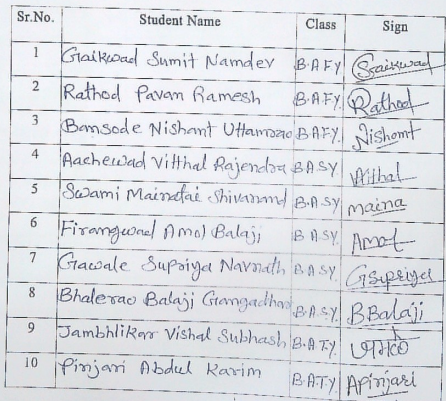 Sr.No. Student Name Class Sign
1 Gaikwad Sumit Namdev B.A F.Y Gaikwad
2 Rathod Pavan Ramesh B.A F.Y. Rathod
3 Bansode Nishant Uttamrao B.A F.Y. Nishant
4 Aachewad Vitthal Rajendra B A S.Y. Vitthal
5 Swami Mainatai Shivanand B.A S.Y maina
6 Firangwad Amol Balaji B A S.Y. Amol
7 Gawale Supriya Navnath B.A S.Y. GSupriya
8 Bhalerao Balaji Gangadhar B.A.S.Y. BBalaji
9 Jambhlikar Vishal Subhash B.A T.Y.
10 Pinjari Abdul Karim B.A T.Y APinjari